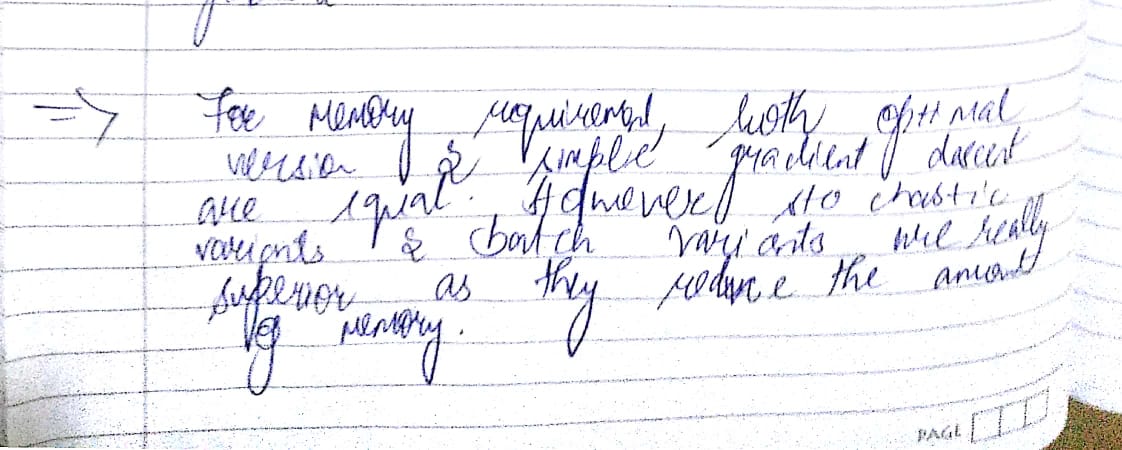 => For memory requirement, both optimal
version & simple gradient descent
are equal. However stochastic
variants & batch variants are really
superior as they reduce the amount
of memory.
PAGE